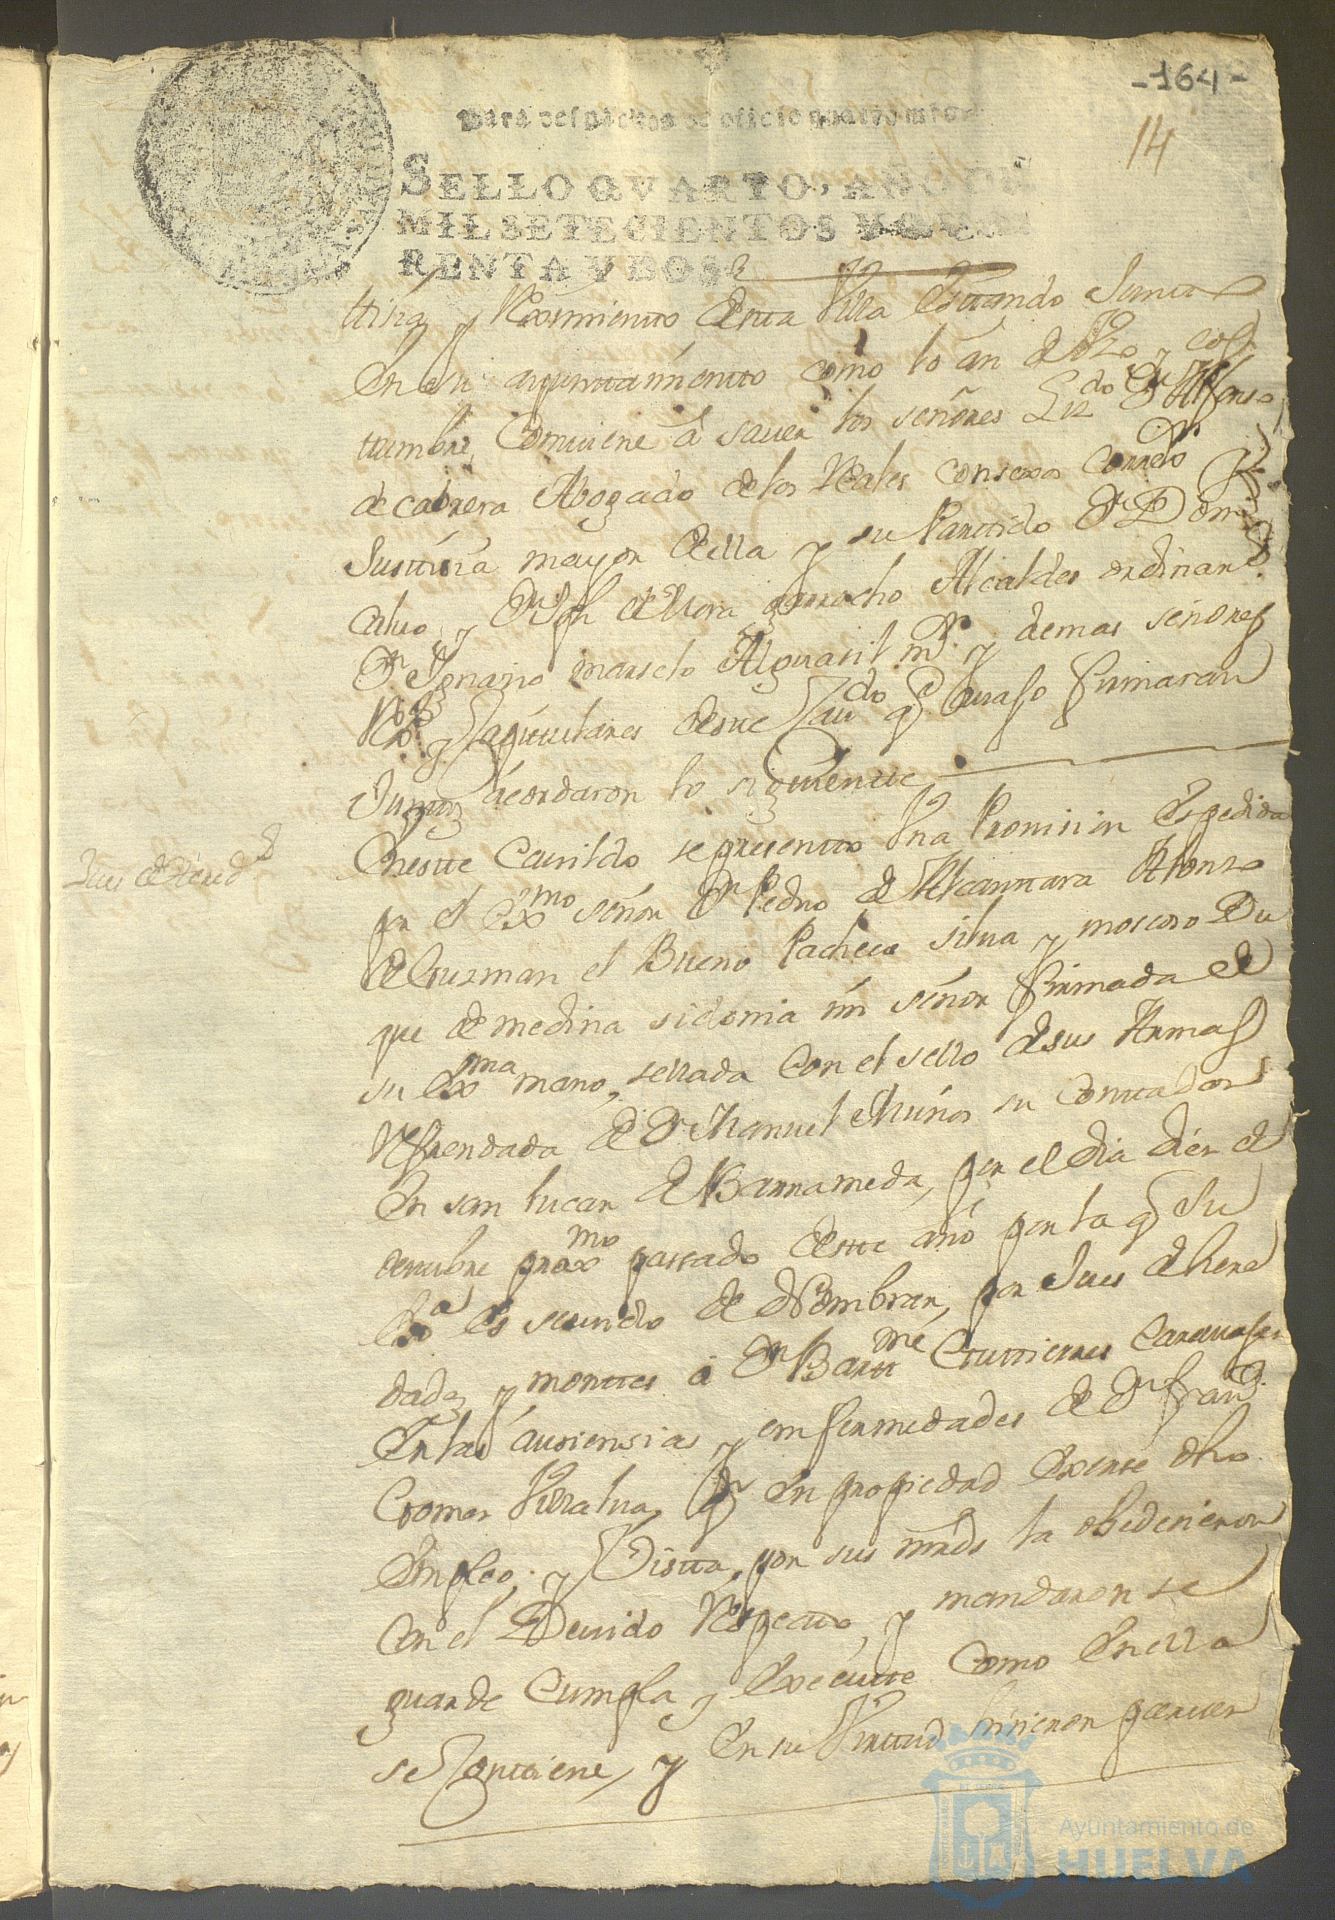 -164-
14
Para despachos de oficio quatro mrs.
SELLO QVARTO, AÑO DE
MIL SETECIENTOS Y QUA
RENTA Y DOS
y Reximiento desta Villa estando Juntos
en su ayuntamiento como lo an de Vzo y cos
tumbre, comviene á sauer los señores Lizdo Dn Alfonso
de cabrera Abogado de los Reales consexos Correxor
Justisia mayor della y su Partido Dn Domo
Calvo, y Dn Jph de Mora garrocho Alcaldes ordinaros
Dn Ygnazio marselo Alguasil mor y demas señores
Rexs y Capitulares deste Cavdo q auajo firmaran
Juntos acordaron lo siguiente
Jues de ered
Eneste Cauildo se presento Vna Prouision Espedida
por el Exmo señor Dn Pedro de Alcantara Alonso
de Guzman el Bueno Pacheco silua y moscoso Du
que de medina sidonia mi señor firmada de
su Exma mano, sellada con el sello de sus Armas
Refrendada de Dn Manuel Muños su contador
En san lucar de Barrameda, por el dia dies de
octubre proxmo passado deste año por la q Su
Exa es seruido de Nombrar, por Jues de here
dades y montes á Dn Bartme Gutierres Carauajal
En las ausensias y emfermedades de Dn Franco
Gomes Villalua, q en propiedad exerse dho
Empleo; y Vista, por sus mrds la obedesieron
Con el Deuido Respecto, y mandaron se
guarde Cumpla y Execute como en ella
se Contiene, y en su Virtud hisieron pareser
Ayuntamiento de
HUELVA